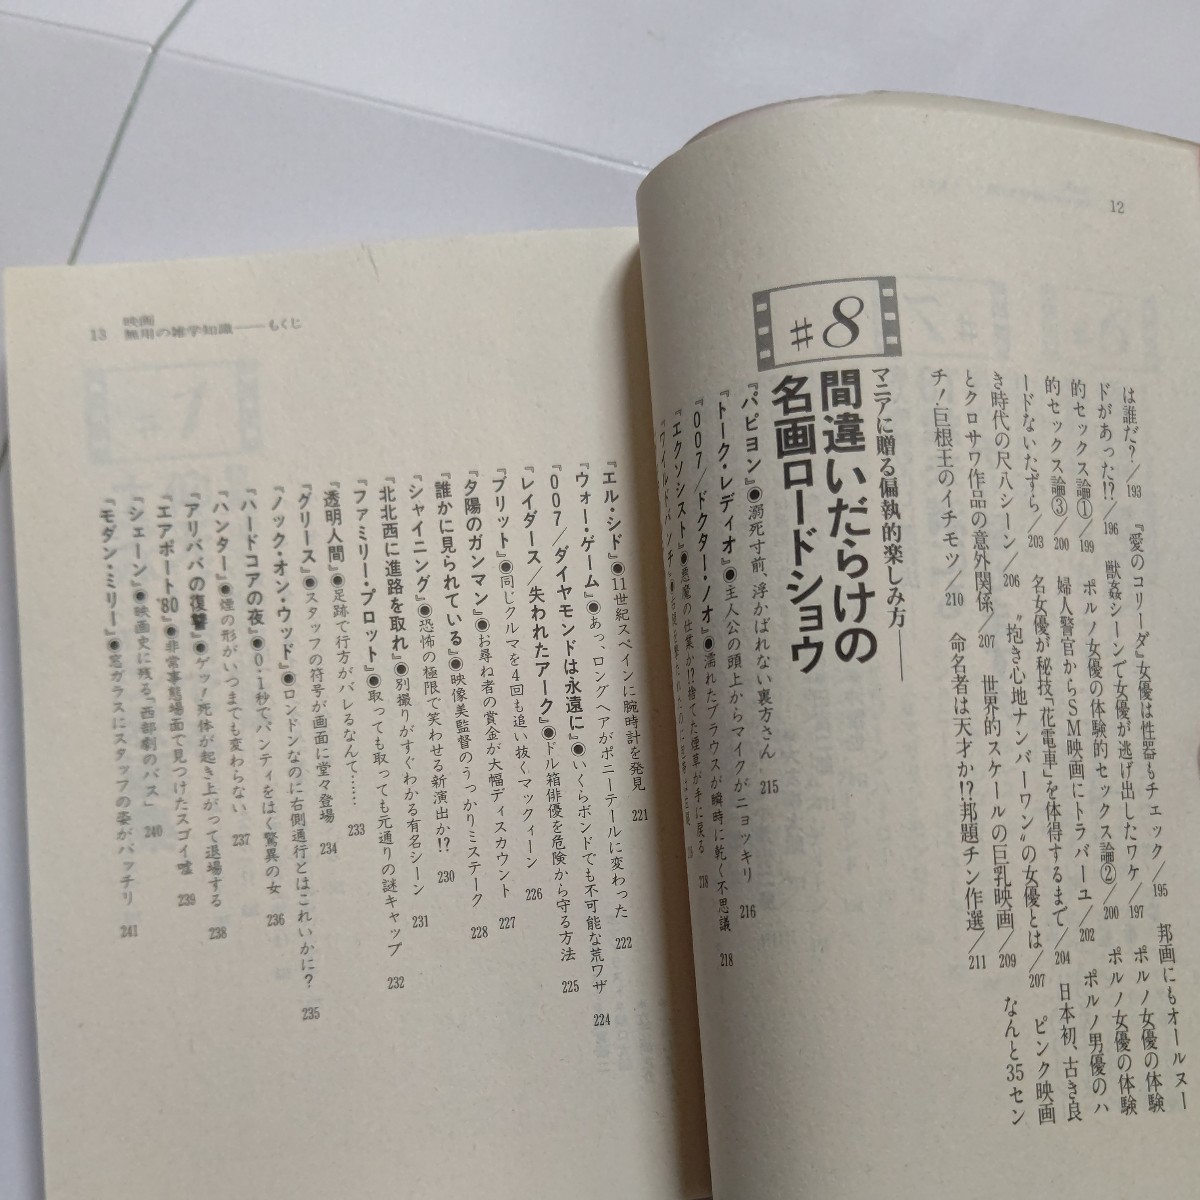 12
は誰だ?/193 『愛のコリーダ』女優は性器もチェック/195 邦画にもオールヌー
ドがあった!?/196 獣姦シーンで女優が逃げ出したワケ/197 ポルノ女優の体験
的セックス論①/199 ポルノ女優の体験的セックス論②/200 ポルノ女優の体験
的セックス論③/200 婦人警官からSM映画にトラバーユ/202 ポルノ男優のハ
ードないたずら/203 名女優が秘技「花電車」を体得するまで/204 日本初、古き良
き時代の尺八シーン/206 “抱き心地ナンバーワン”の女優とは/207 ピンク映画
とクロサワ作品の意外関係/207 世界的スケールの巨乳映画/209 なんと35セン
チ!巨根王のイチモツ/210 命名者は天才か!?邦題チン作選/211
#8
マニアに贈る偏執的楽しみ方――
間違いだらけの
名画ロードショウ
『パピヨン』◉溺死寸前、浮かばれない裏方さん 215
『トーク・レディオ』◉主人公の頭上からマイクがニョッキリ 216
『007/ドクター・ノオ』◉濡れたブラウスが瞬時に乾く不思議 218
『エクソシスト』◉悪魔の仕業か!?捨てた煙草が手に戻る 218
『ワイルドバンチ』
13 映画無用の雑学知識――もくじ
『エル・シド』◉11世紀スペインに腕時計を発見 221
『ウォー・ゲーム』◉あっ、ロングヘアがポニーテールに変わった 222
『007/ダイヤモンドは永遠に』◉いくらボンドでも不可能な荒ワザ 224
『レイダース/失われたアーク』◉ドル箱俳優を危険から守る方法 225
『ブリット』◉同じクルマを4回も追い抜くマックィーン 226
『夕陽のガンマン』◉お尋ね者の賞金が大幅ディスカウント 227
『誰かに見られている』◉映像美監督のうっかりミステーク 228
『シャイニング』◉恐怖の極限で笑わせる新演出か!? 230
『北北西に進路を取れ』◉別撮りがすぐわかる有名シーン 231
『ファミリー・プロット』◉取っても取っても元通りの謎キャップ 232
『透明人間』◉足跡で行方がバレるなんて…… 233
『グリース』◉スタッフの符号が画面に堂々登場 234
『ノック・オン・ウッド』◉ロンドンなのに右側通行とはこれいかに? 235
『ハードコアの夜』◉0・1秒でパンティをはく驚異の女 236
『ハンター』◉煙の形がいつまでも変わらない 237
『アリババの復讐』◉ゲッ!死体が起き上がって退場する 238
『エアポート'80』◉非常事態場面で見つけたスゴイ嘘 239
『シェーン』◉映画史に残る「西部劇のバス」 240
『モダン・ミリー』◉窓ガラスにスタッフの姿がバッチリ 241